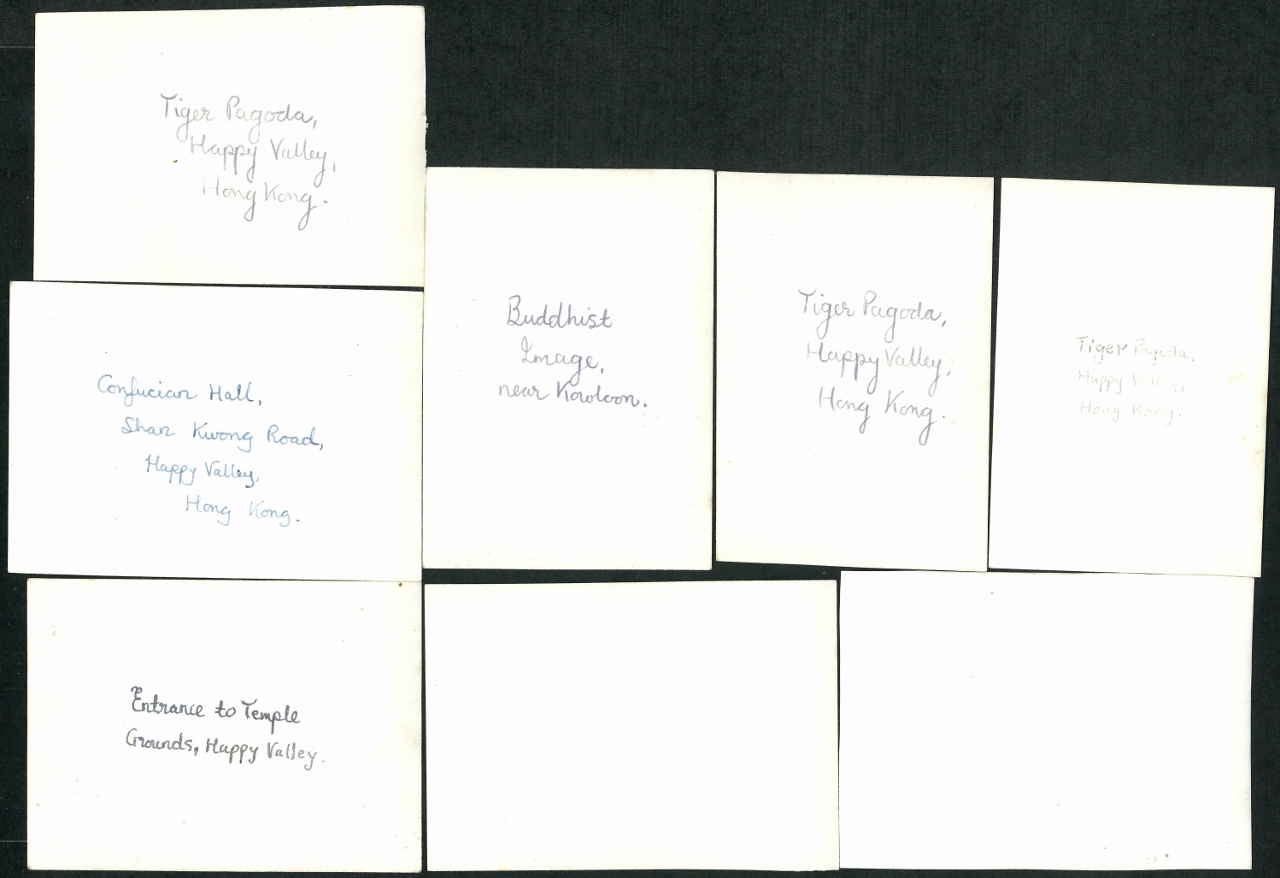 Tiger Pagoda,
Happy Valley,
Hong Kong.
Confucian Hall,
Shan Kwong Road,
Happy Valley,
Hong Kong.
Entrance to Temple
Grounds, Happy Valley.
Buddhist
Image,
near Kowloon.
Tiger Pagoda,
Happy Valley,
Hong Kong.
Tiger Pagoda,
Happy Valley,
Hong Kong.